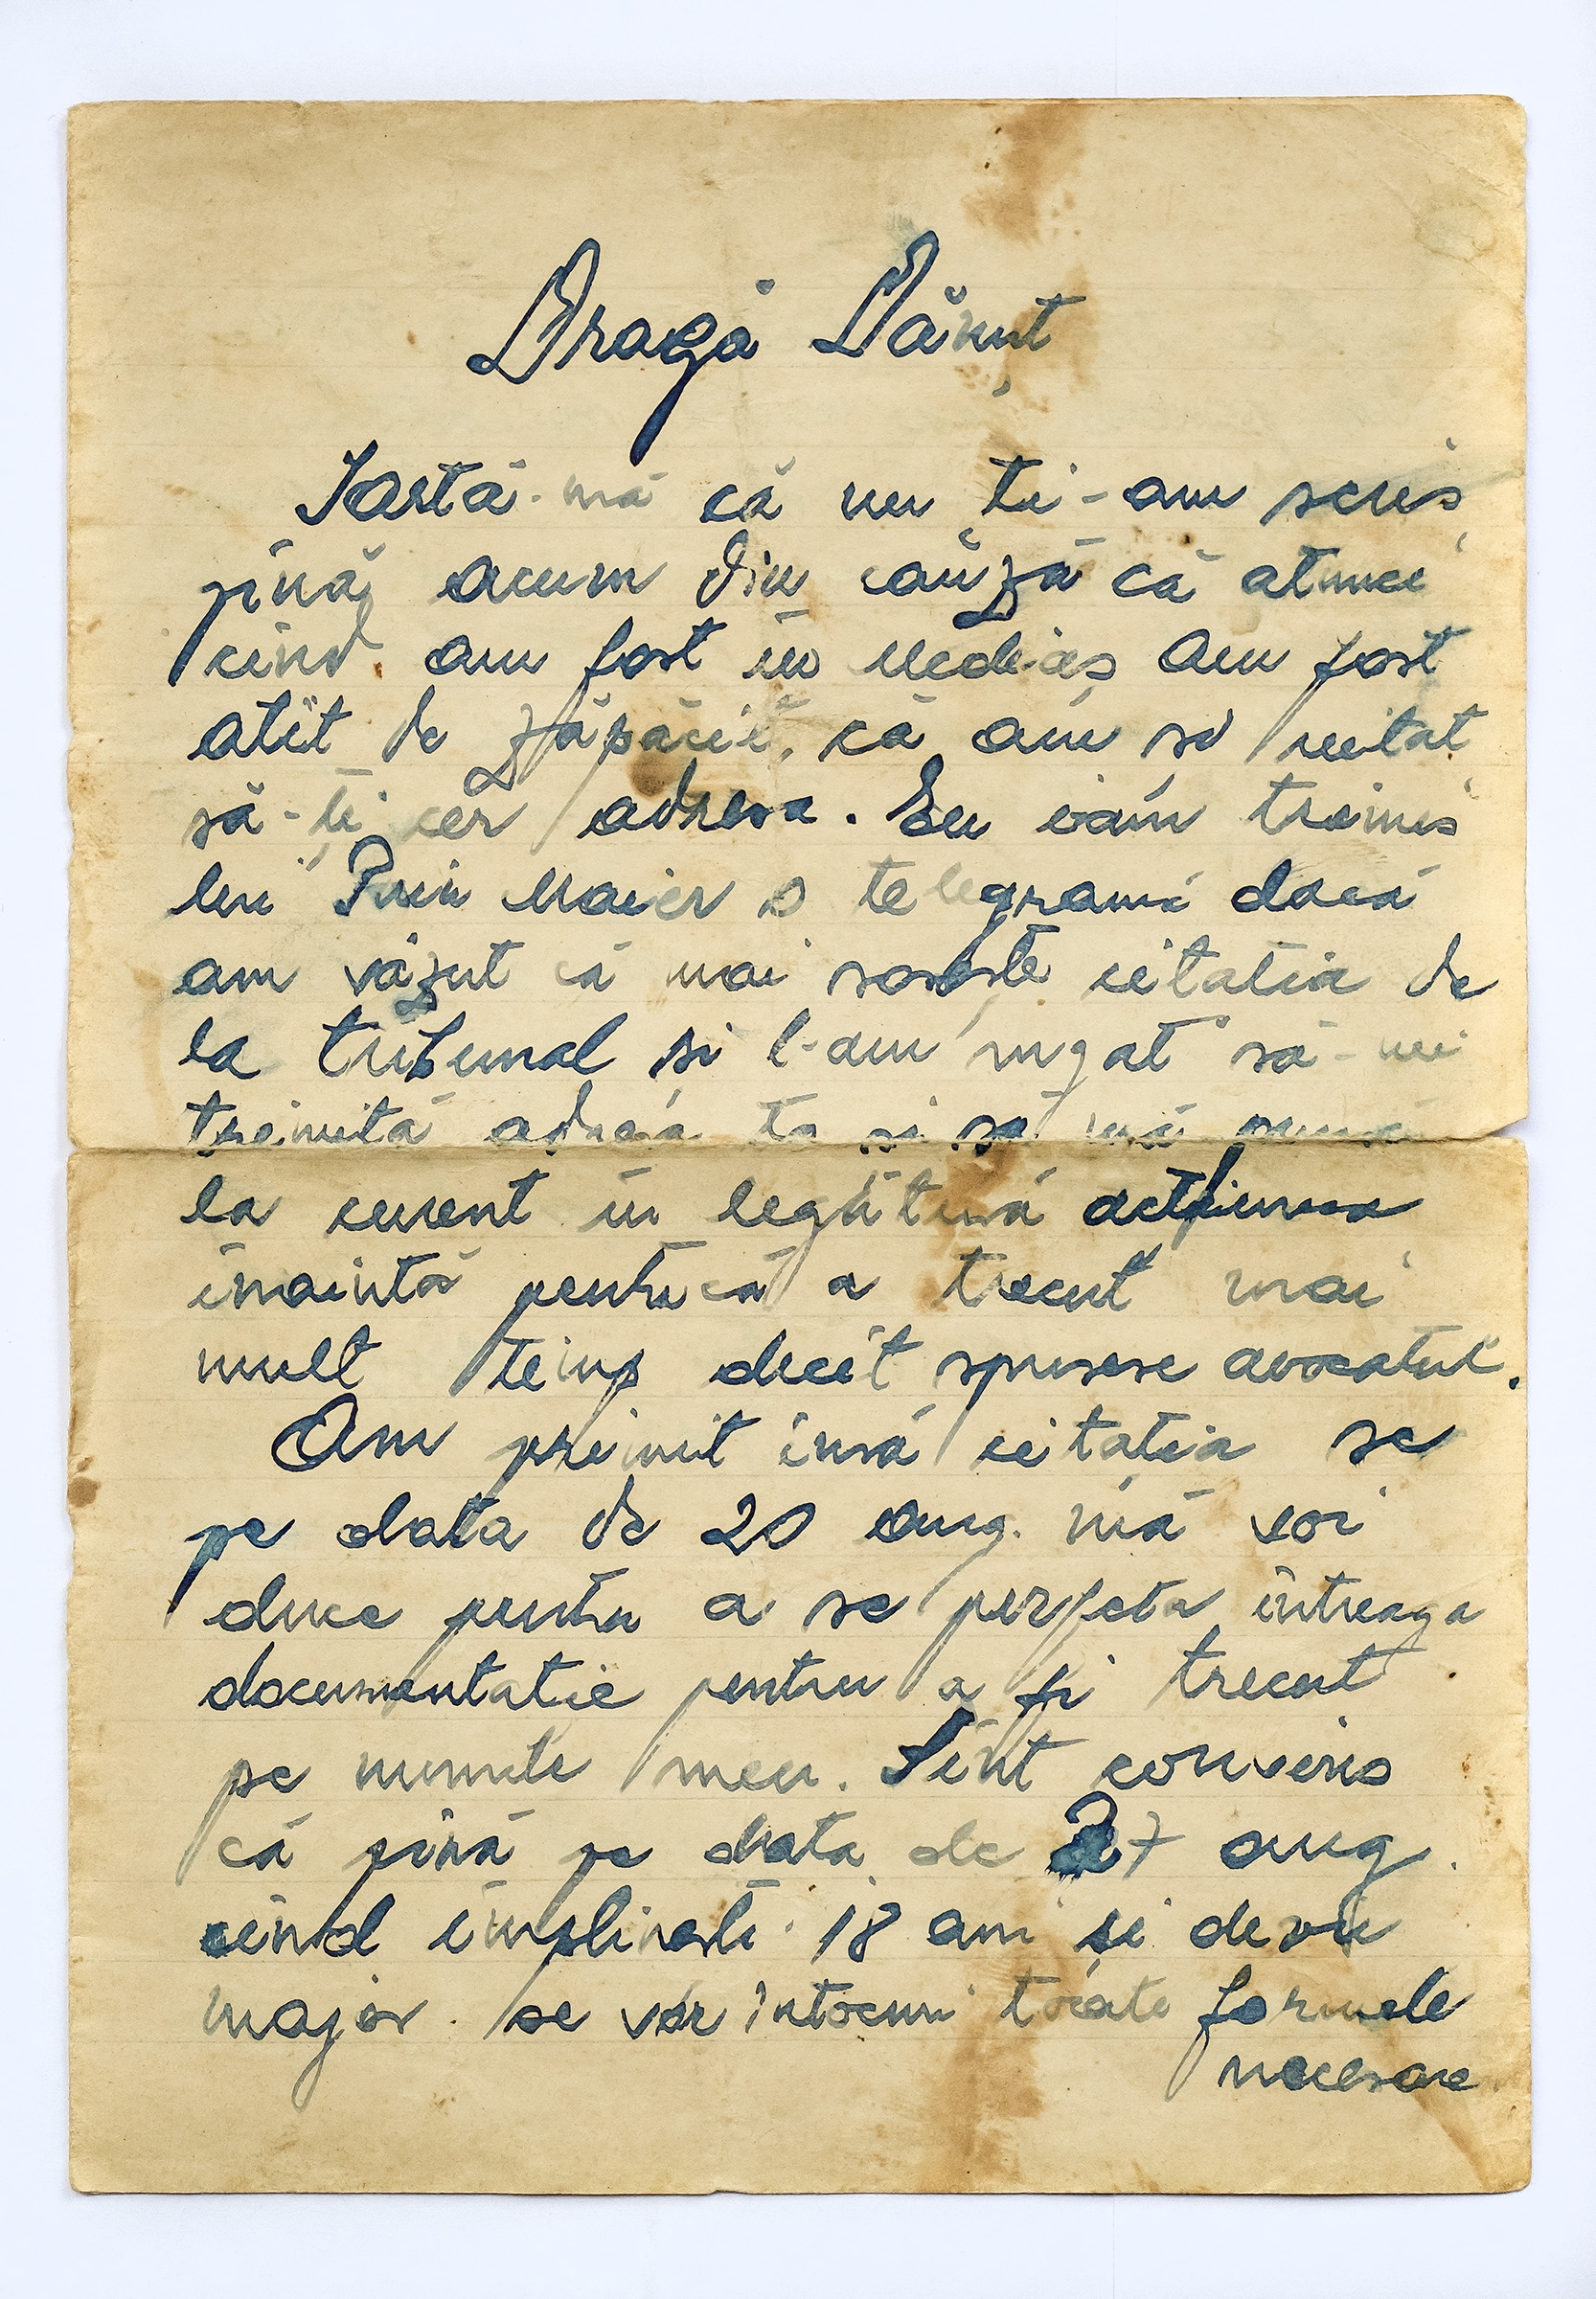 Dragă Dănuț
Iartă-mă că nu ți-am scris
pînă acum din cauză că atunci
cînd am fost în Mediaș am fost
atît de zăpăcit, că am și uitat
să-ți cer adresa. Eu i-am trimis
lui Puiu Maier o telegramă dacă
am văzut că mai sosește citația de
la tribunal și l-am rugat să-mi
trimită adresa ta și să mă pună
la curent în legătură acțiunea
înaintă pentrucă a trecut mai
mult timp decît spusese avocatul.
Am primit însă citația se
pe data de 20 aug. mă voi
duce pentru a se perfecta întreaga
documentație pentru a fi trecut
pe numele meu. Sînt convins
că pînă pe data de 27 aug.
cînd împlinești 18 ani și devii
major. se vor întocmi toate formele
necesare